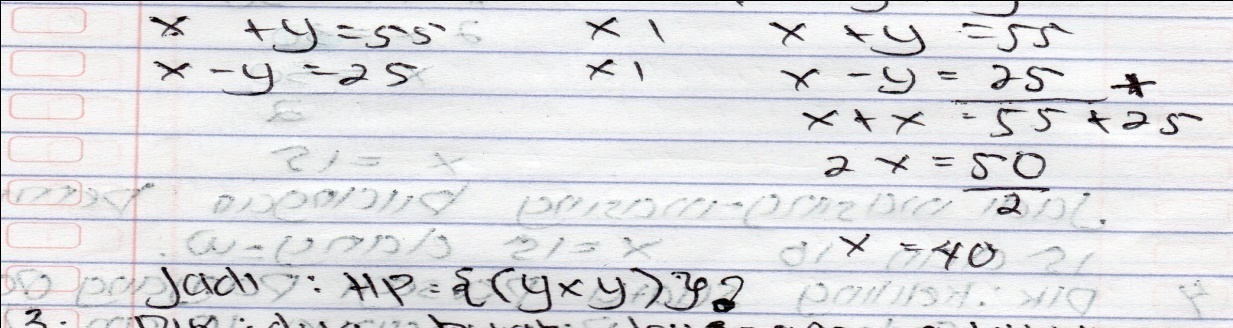 x + y = 55 x 1 x + y = 55
x - y = 25 x 1 x - y = 25 +
x + x = 55 + 25
2 x = 50
2
x = 40
Jadi : HP = {(y x y)}
3.